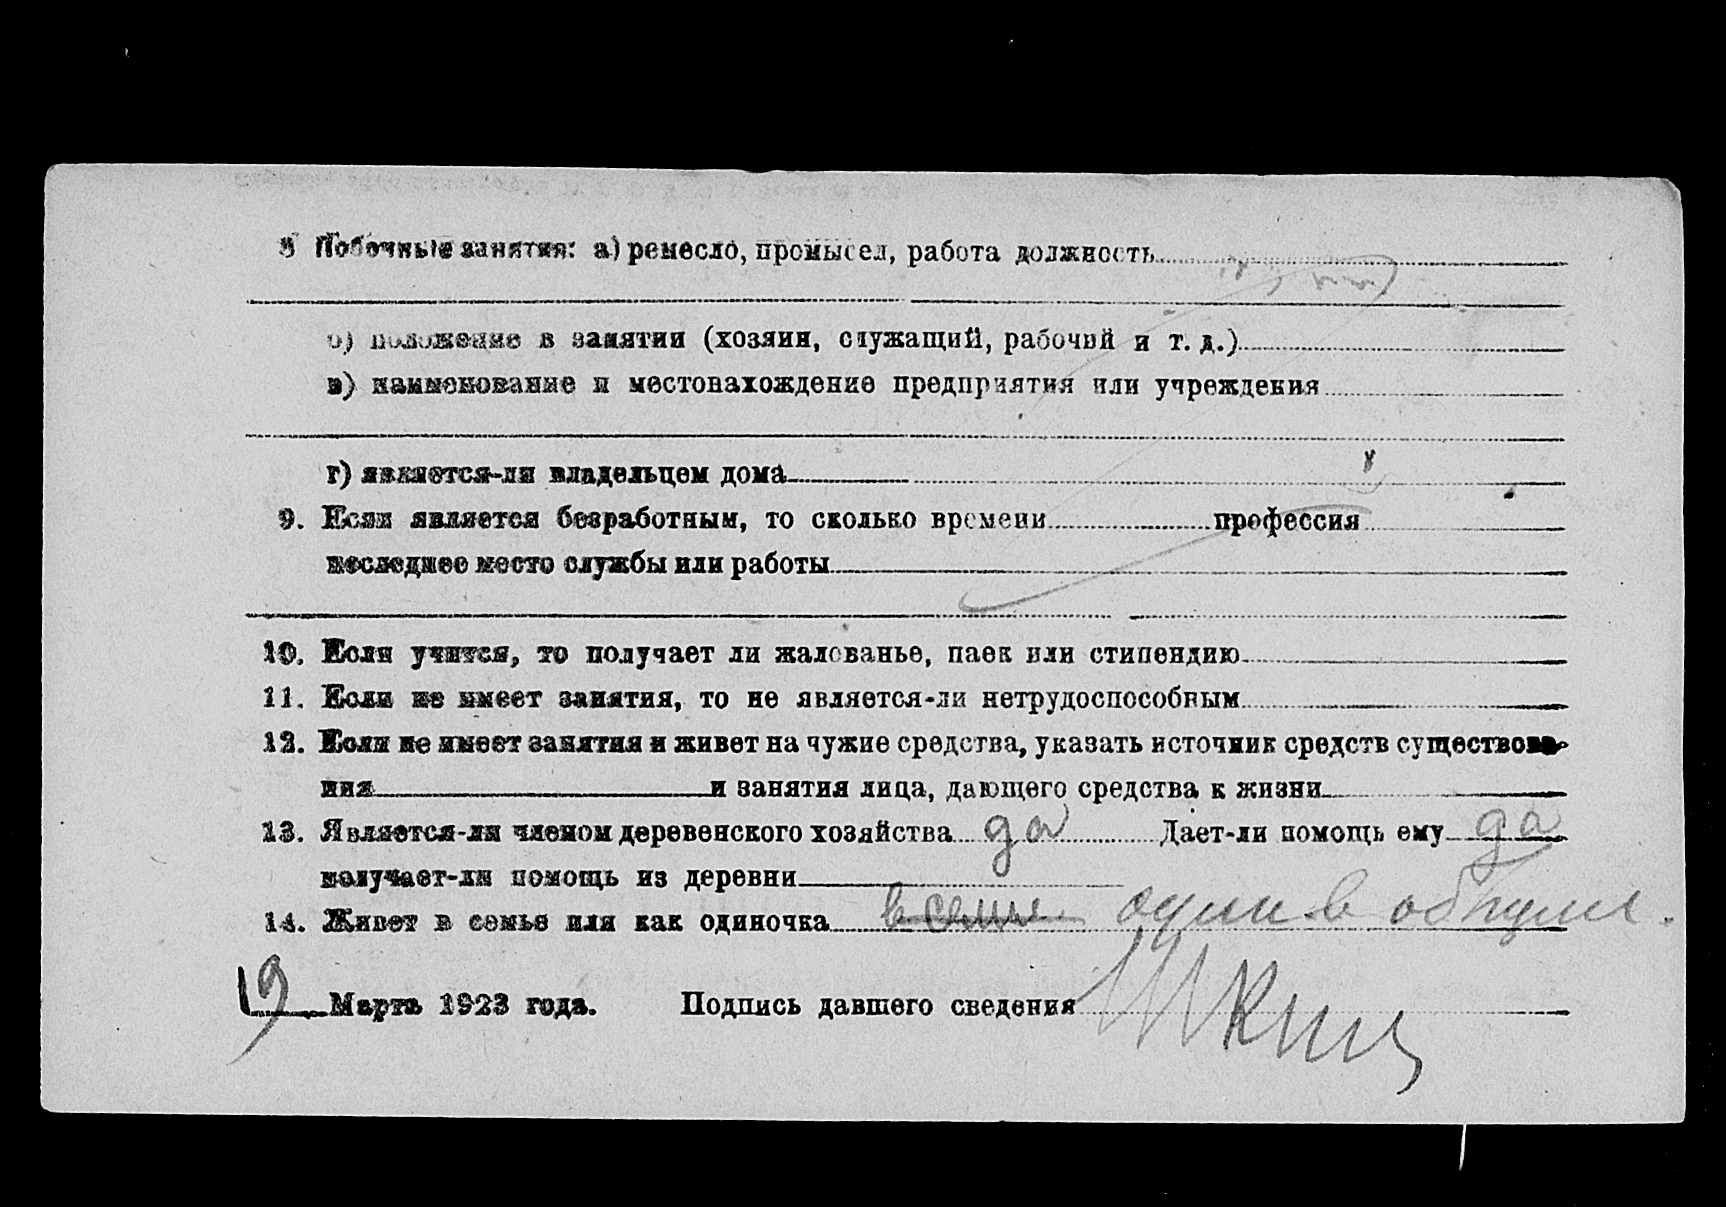 8 Побочные занятия: а) ремесло, промысел, работа должность
б) положение в занятии (хозяин, служащий, рабочий и т. д.)
в) наименование и местонахождение предприятия или учреждения
г) является-ли владельцем дома
9. Если является безработным, то сколько времени профессия
последнее место службы или работы
10. Если учится, то получает ли жалованье, паек или стипендию
11. Если не имеет занятия, то не является-ли нетрудоспособным
12. Если не имеет занятия и живет на чужие средства, указать источник средств существова-
ния и занятия лица, дающего средства к жизни
13. Является-ли членом деревенского хозяйства да Дает-ли помощь ему да
получает-ли помощь из деревни
14. Живет в семье или как одиночка в семье один в
19 Марта 1923 года. Подпись давшего сведения